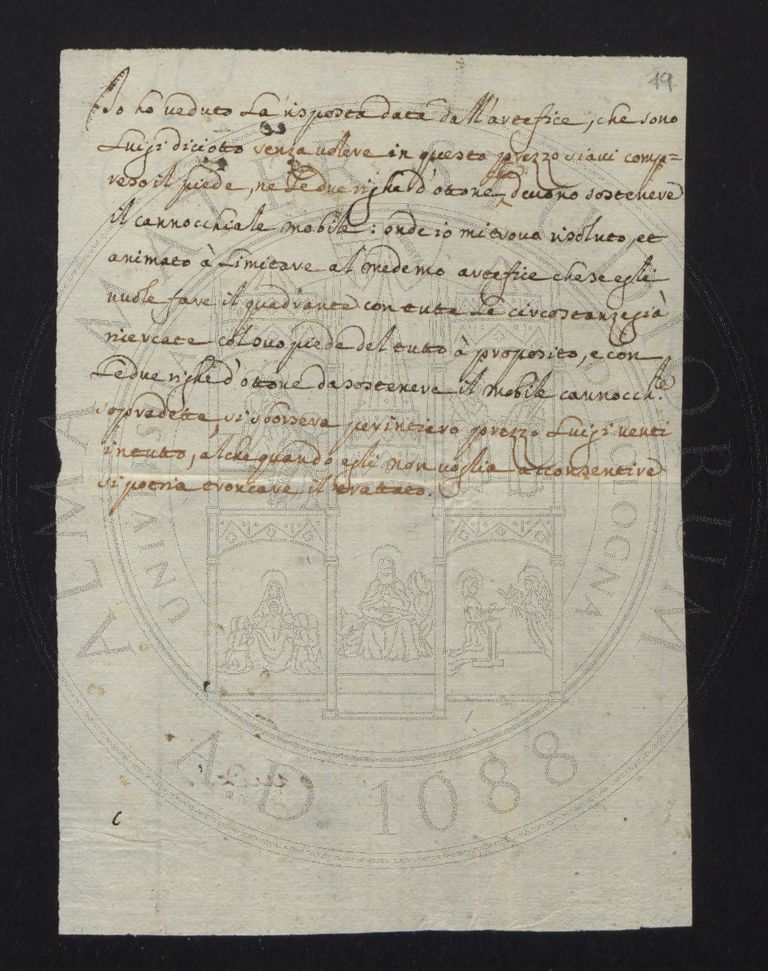 19
Io ho ueduto La risposta data dall'artefice, che sono
Luigi diciotto senza uolere in questo prezzo siaui comp=
reso il piede, ne Le due righe d'ottone, che deuono sostenere
il cannocchiale mobile: onde io mi trouo risoluto, et
animato à Limitare al medemo artefice che se egli
uuole fare il quadrante con tutte Le circostanze già
ricercate col suo piede del tutto à proposito, e con
Le due righe d'ottone da sostenere il mobile cannocch.le
sopradette, si sborserà per intiero prezzo Luigi uenti
in tutto, al che quando egli non uoglia acconsentire
si potrià troncare il trattato.
c
ALMA MATER STUDIORUM
UNIVERSITÀ DI BOLOGNA
A.D. 1088